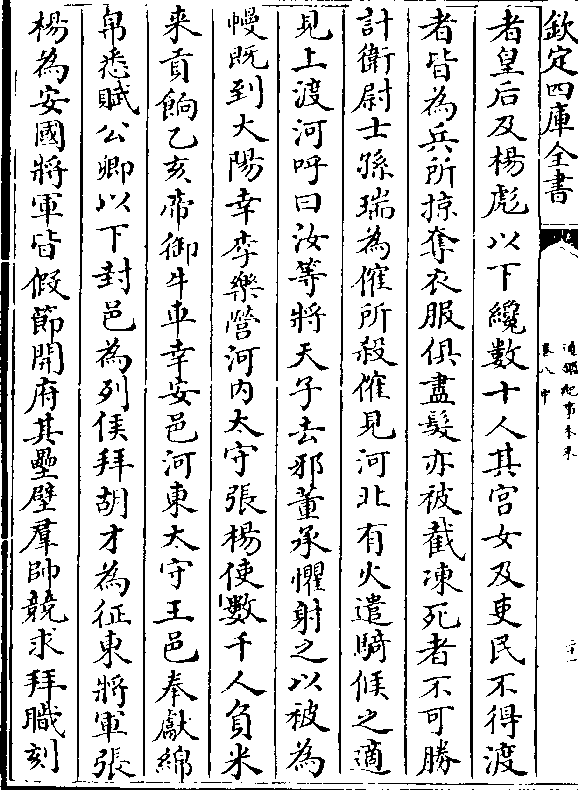 欽定四庫全書
通鑑紀事本末
卷八中
二十一
者皇后及楊彪以下纔數十人其宫女及吏民不得渡
者皆為兵所掠奪衣服俱盡髮亦被截凍死者不可勝
計衛尉士孫瑞為傕所殺傕見河北有火遣騎候之適
見上渡河呼曰汝等將天子去邪董承懼射之以被為
幔既到大陽幸李樂營河内太守張楊使數千人負米
来貢餉乙亥帝御牛車幸安邑河東太守王邑奉獻綿
帛悉賦公卿以下封邑為列侯拜胡才為征東將軍張
楊為安國將軍皆假節開府其壘壁羣帥競求拜職刻